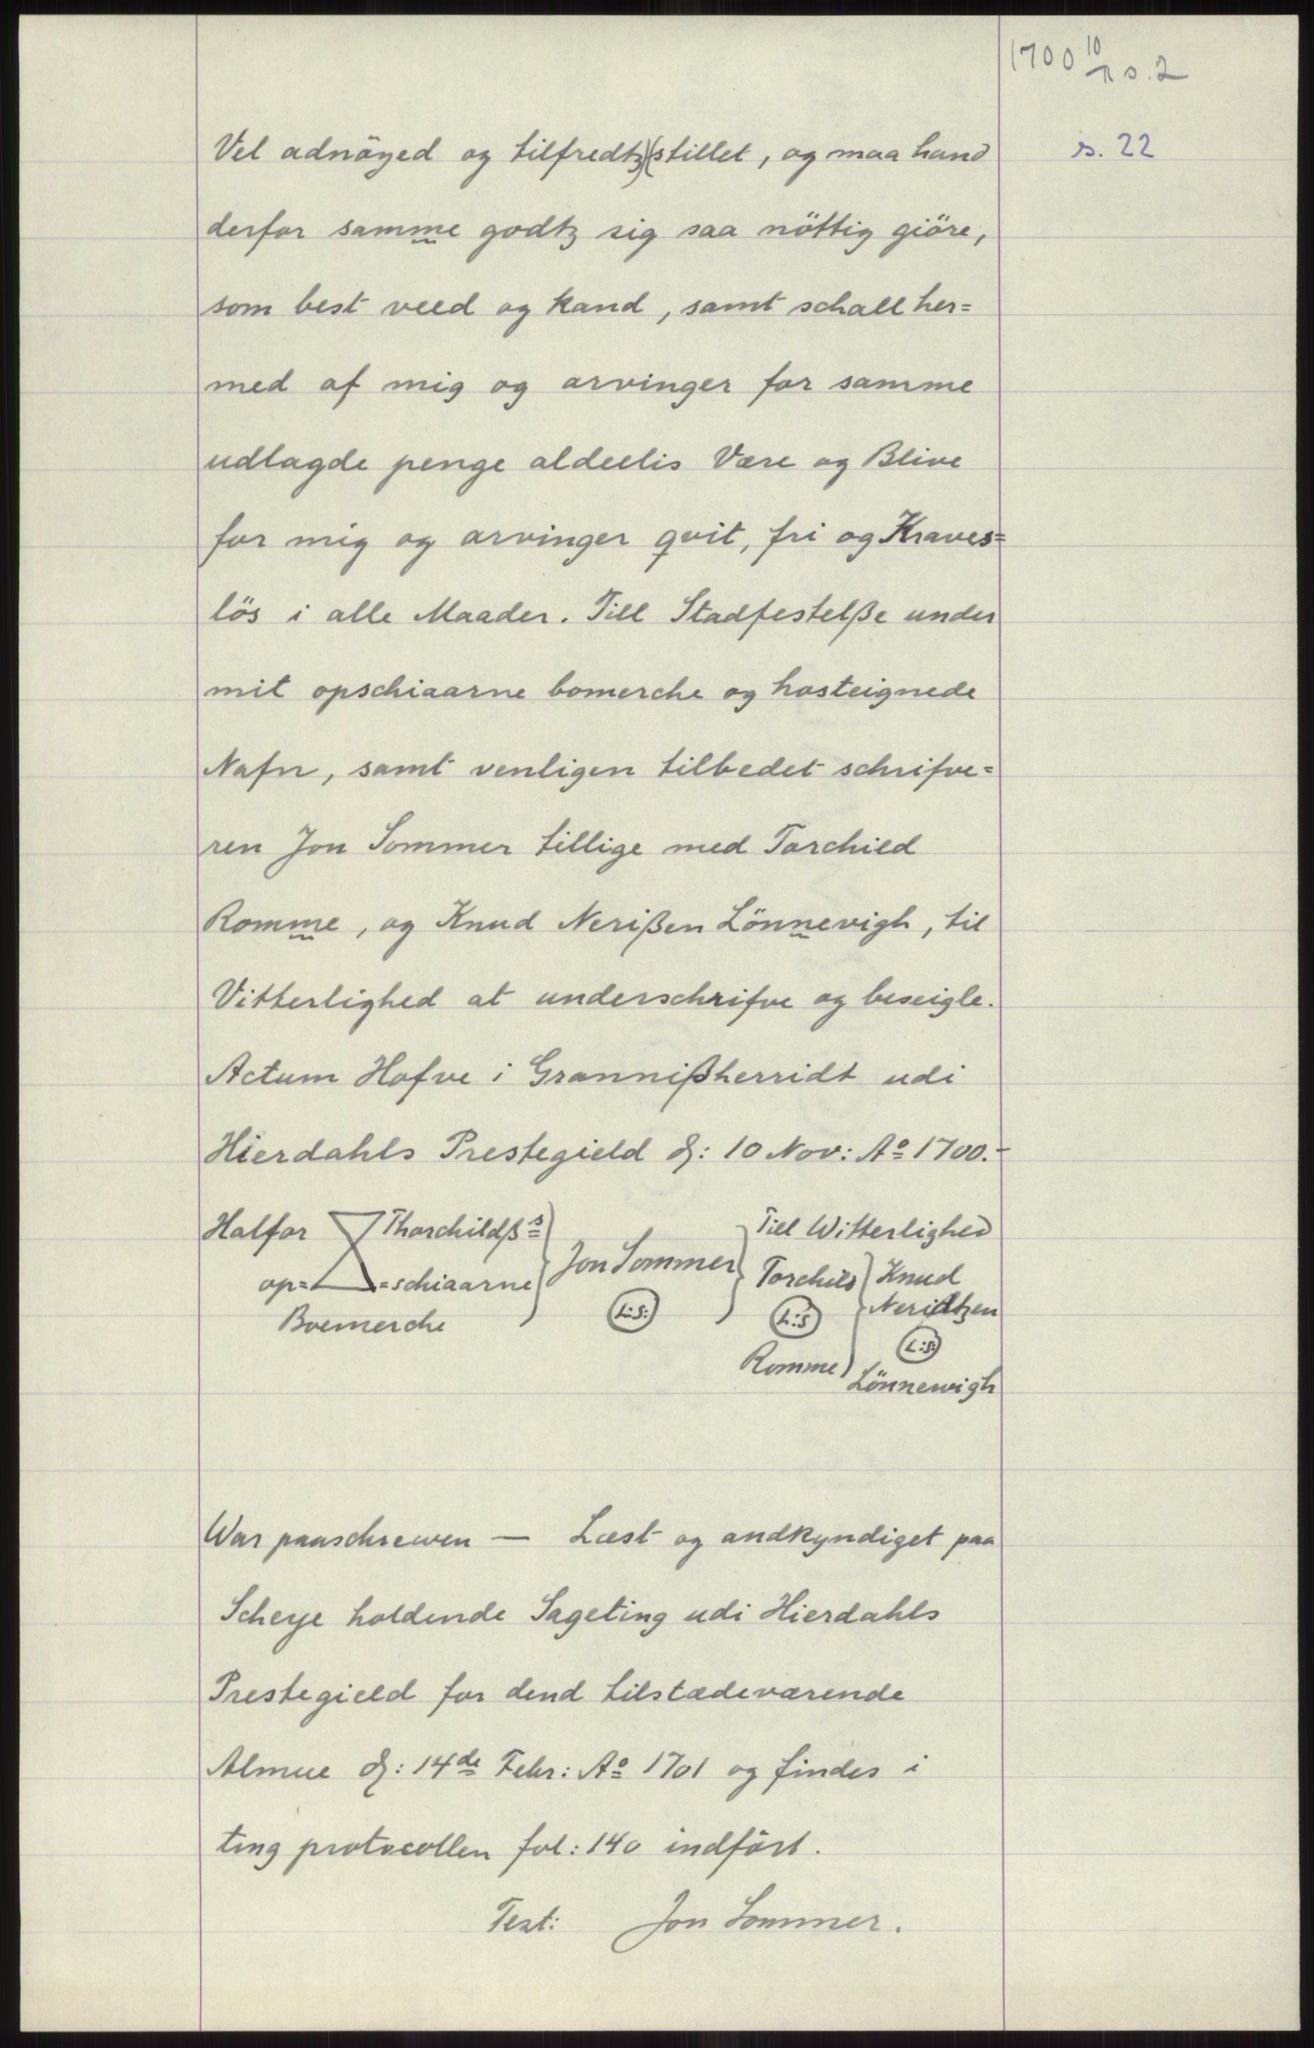 1700 10/11 s. 2
s. 22
Vel adnöyed og tilfredtz stillet, og maa hand
derfor samme godtz sig saa nöttig giöre,
som best veed og kand, samt schall her=
med af mig og arvinger for samme
udlagde penge aldeelis Være og Blive
for mig og arvinger qvit, fri og Kraves=
lös i alle Maader. Till Stadfestelße under
mit opschiaarne bomerche og hosteignede
Nafn, samt venligen tilbedet schrifve=
ren Jon Sommer tillige med Torchild
Romme, og Knud Nerißen Lönnevigh, til
Vitterlighed at underschrifve og beseigle.
Actum Hofve i Grannißherridt udi
Hierdahls Prestegield d: 10 Nov: Aº 1700.-
Halfor Thorchildß s
op= =schiaarne
Boemerche
Jon Sommer
L:S:
Till Witterlighed
Torchild
L:S
Romme
Knud
Neridtzen
L:S:
Lönnewigh
War paaschrewen — Læst og andkyndiget paa
Scheye holdende Sageting udi Hierdahls
Prestegield for dend tilstædeværende
Almue d: 14de Febr: Aº 1701 og findes i
ting protocollen fol: 140 indfört.
Test: Jon Sommer.